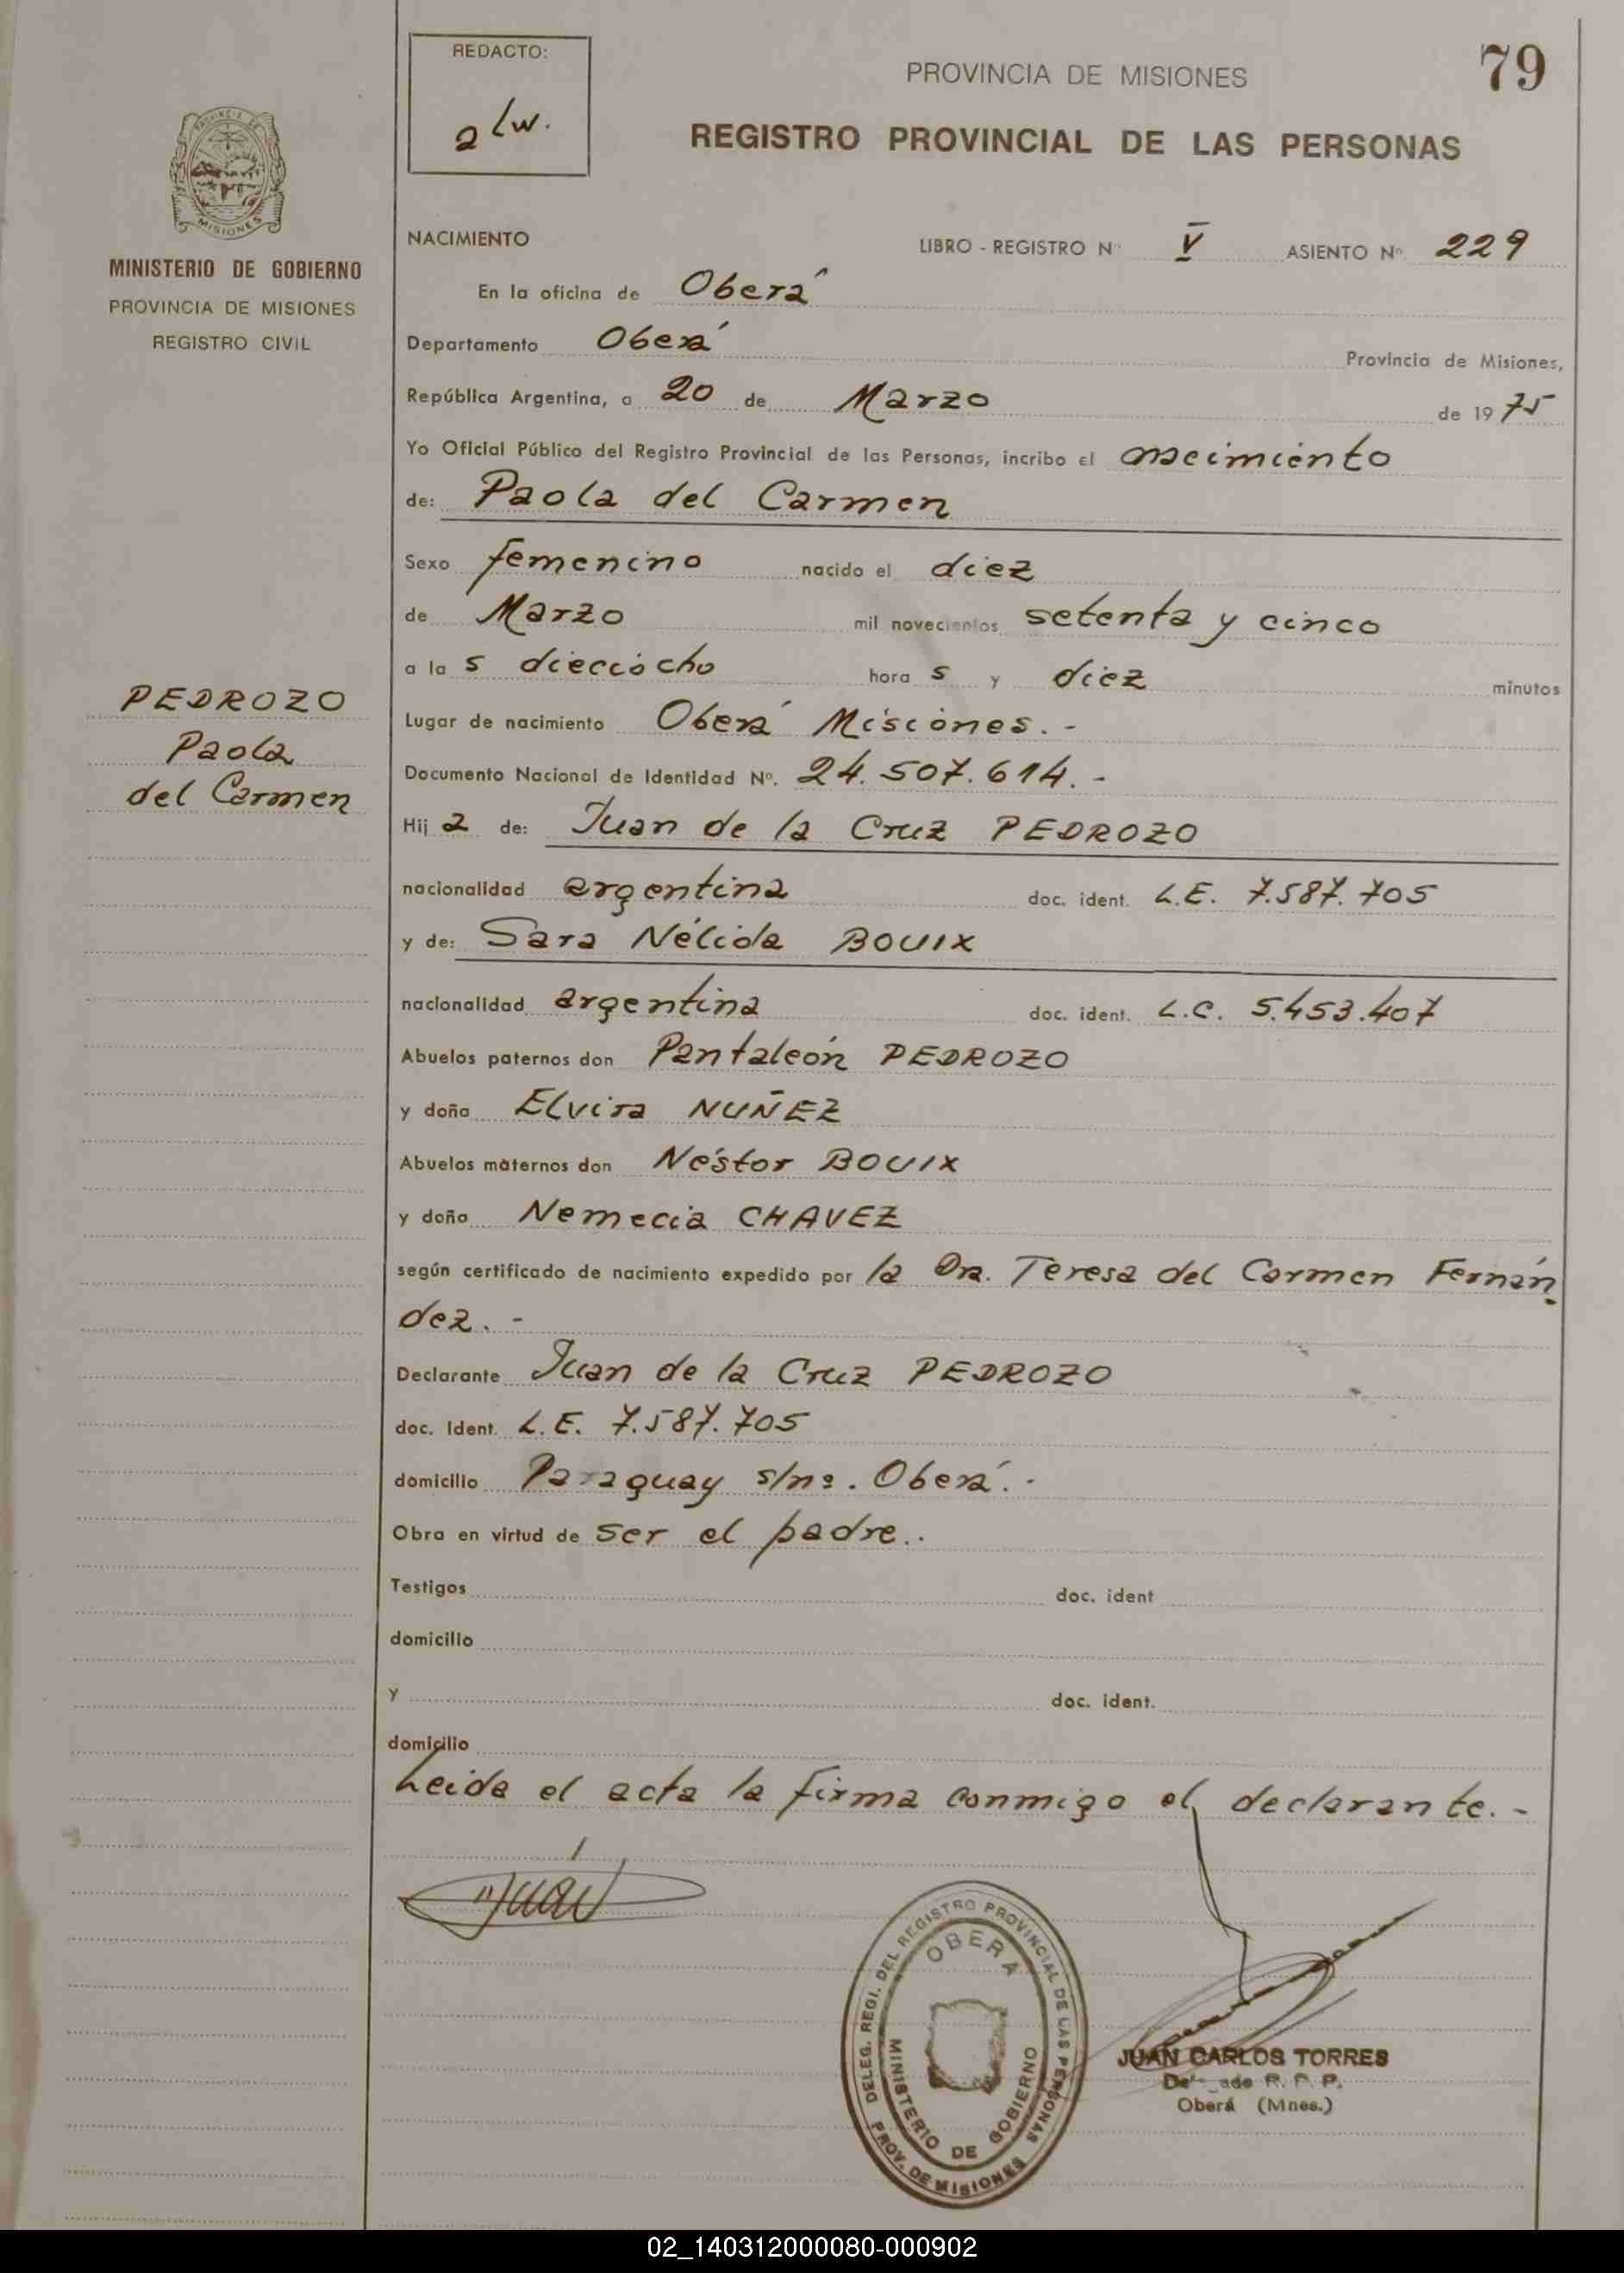 REDACTO:
a lw.
79
PROVINCIA DE MISIONES
REGISTRO PROVINCIAL DE LAS PERSONAS
MISIONES
MINISTERIO DE GOBIERNO
PROVINCIA DE MISIONES
REGISTRO CIVIL
PEDROZO
Paola
del Carmen
NACIMIENTO LIBRO - REGISTRO Nº V ASIENTO Nº 229
En la oficina de Oberá
Departamento Oberá Provincia de Misiones,
República Argentina, a 20 de Marzo de 1975
Yo Oficial Público del Registro Provincial de las Personas, incribo el nacimiento
de: Paola del Carmen
Sexo femenino nacido el diez
de Marzo mil novecientos setenta y cinco
a la s dieciocho hora s y diez minutos
Lugar de nacimiento Oberá Misiones. -
Documento Nacional de Identidad Nº. 24.507.614. -
Hij a de: Juan de la Cruz PEDROZO
nacionalidad argentina doc. ident. L.E. 7.587.705
y de: Sara Nélida BOUIX
nacionalidad argentina doc. ident. L.C. 5.453.407
Abuelos paternos don Pantaleón PEDROZO
y doña Elvira NUÑEZ
Abuelos maternos don Néstor BOUIX
y doña Nemecia CHAVEZ
según certificado de nacimiento expedido por la Dra. Teresa del Carmen Fernán
dez. -
Declarante Juan de la Cruz PEDROZO
doc. Ident. L.E. 7.587.705
domicilio Paraguay s/nº. Oberá. -
Obra en virtud de ser el padre..
Testigos doc. ident
domicilio
y doc. ident.
domicilio
Leida el acta la firma conmigo el declarante. -
DELEG. REGI. DEL REGISTRO PROVINCIAL DE LAS PERSONAS
OBERA
MINISTERIO DE GOBIERNO
PROV. DE MISIONES
JUAN CARLOS TORRES
R. P. P.
Oberá (Mnes.)
02_140312000080-000902